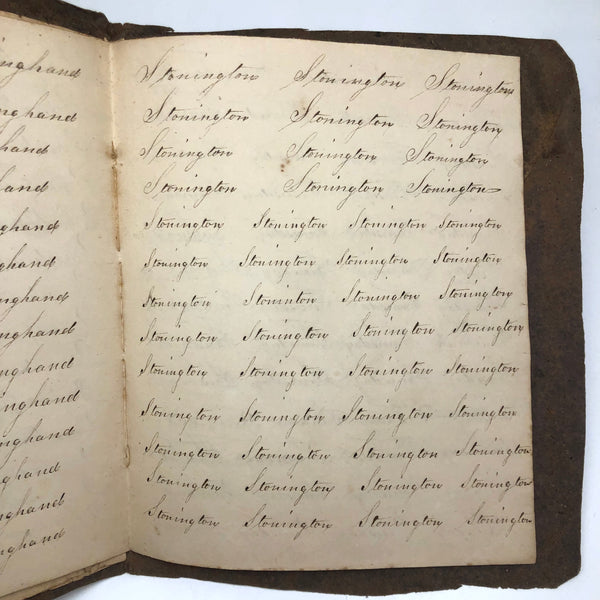 inghand
nghand
hand
hand
nghand
ghand
nghand
nghand
nghand
inghand
nghand
ghand
ghand
nghand
Stonington Stonington Stonington
Stonington Stonington Stonington
Stonington Stonington Stonington
Stonington Stonington Stonington
Stonington Stonington Stonington Stonington
Stonington Stonington Stonington Stonington
Stonington Stoninton Stonington Stonington
Stonington Stonington Stonington Stonington
Stonington Stonington Stonington Stonington
Stonington Stonington Stonington Stonington
Stonington Stonington Stonington Stonington
Stonington Stonington Stonington Stonington
Stonington Stonington Stonington Stonington